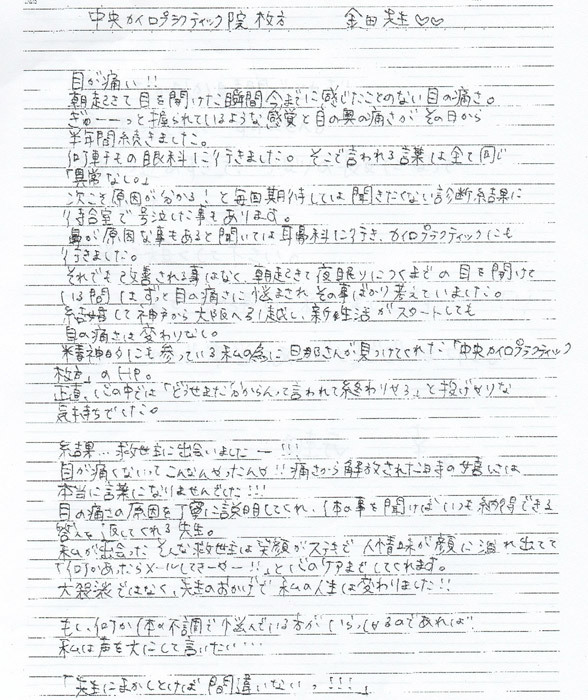 中央カイロプラクティック院 枚方 金田先生♡♡
目が痛い!!
朝起きて目を開けた瞬間今までに感じたことのない目の痛さ。
ぎゅーーっと握られているような感覚と目の奥の痛さがその日から
半年間続きました。
何軒もの眼科に行きました。そこで言われる言葉は全て同じ
「異常なし。」
次こそ原因が分かる!と毎回期待しては聞きたくない診断結果に
待合室で号泣した事もあります。
鼻が原因な事もあると聞いては耳鼻科に行き、カイロプラクティックにも
行きました。
それでも改善される事はなく、朝起きて夜眠りにつくまでの目を開けて
いる間はずっと目の痛さに悩まされその事ばかり考えていました。
結婚して神戸から大阪へ引越し、新生活がスタートしても
目の痛さは変わりなし。
精神的にも参っている私の為に旦那さんが見つけてくれた「中央カイロプラクティック
枚方」のHP。
正直、心の中では「どうせまた分からんって言われて終わりやろ」と投げやりな
気持ちでした。
結果…救世主に出会いましたー!!!
目が痛くないってこんなんやったんや!!痛さから解放された日の嬉しさは
本当に言葉になりませんでした!!!
目の痛さの原因を丁寧に説明してくれ、体の事を聞けばいつも納得できる
答えを返してくれる先生。
私が出会ったそんな救世主は笑顔がステキで人情味が顔に溢れ出てて
「何かあったらメールしてきーやー!!」と心のケアまでしてくれます。
大袈裟ではなく、先生のおかげで私の人生は変わりました!!
もし、何か体の不調で悩んでいる方がいらっしゃるのであれば
私は声を大にして言いたい…
「先生にまかしとけば間違いないっ!!!」